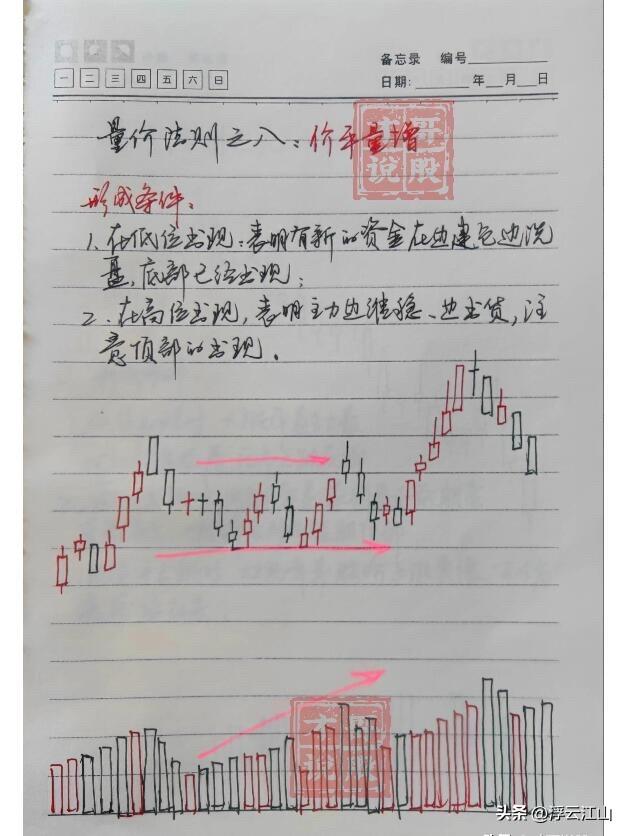 备忘录 编号
一 二 三 四 五 六 日
日期: 年 月 日
量价法则之八:价平量增
形成条件:
1、在低位出现:表明有新的资金在边建仓边洗
盘,底部已经出现;
2、在高位出现,表明主力边维稳、边出货,注
意顶部的出现。
哥说股
说股
头条 @浮云江山